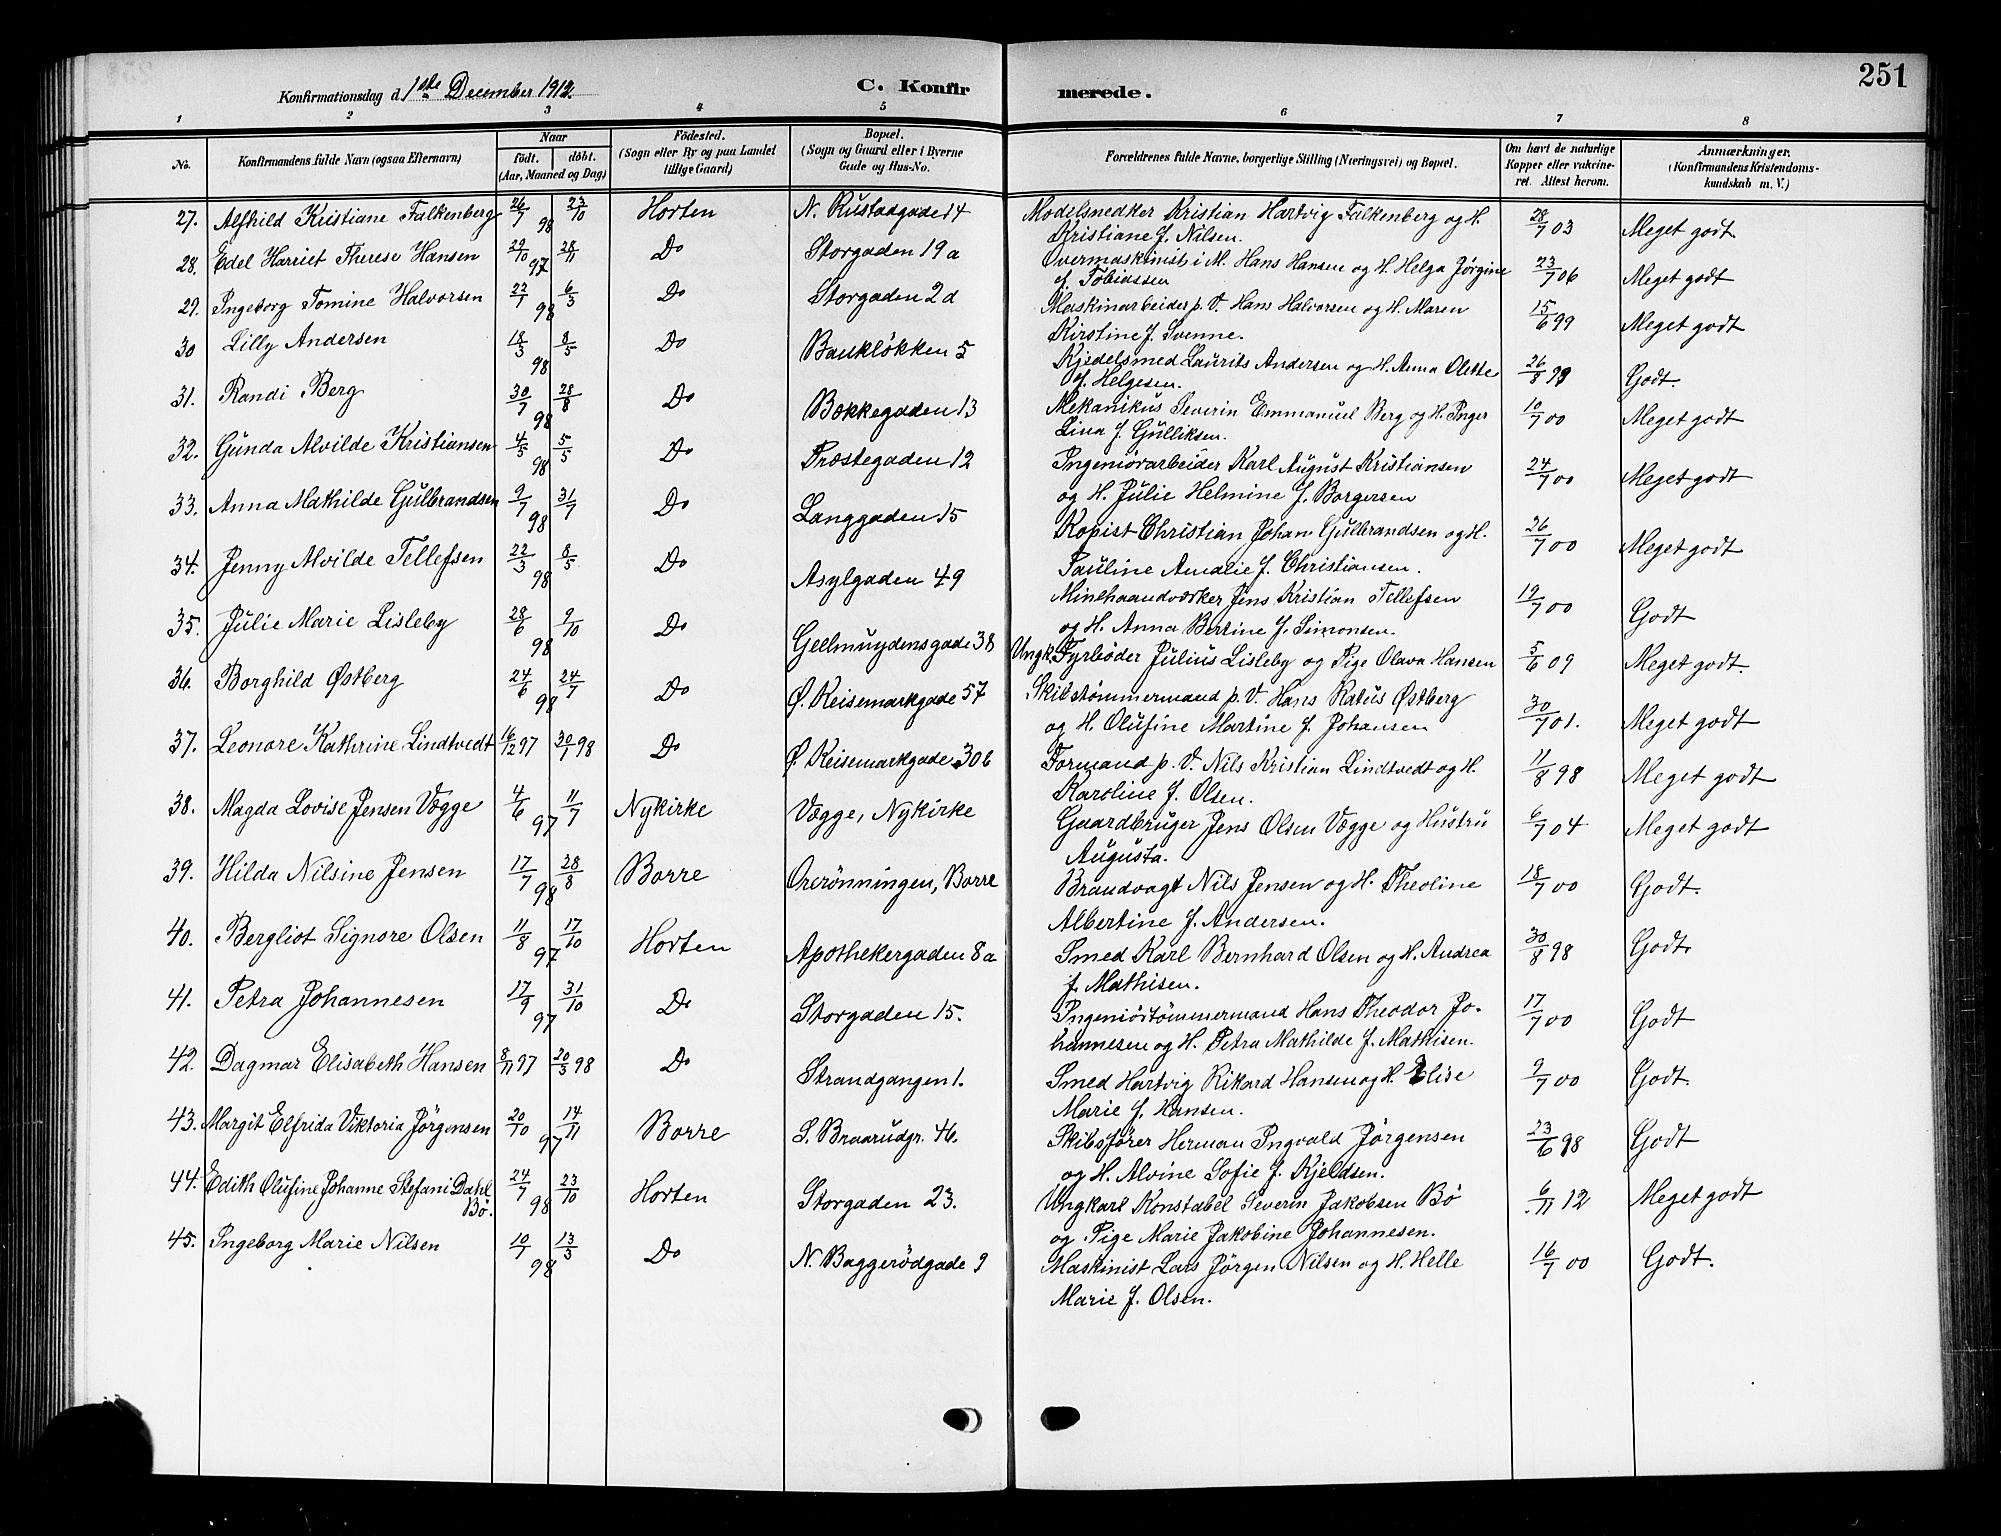 251
Konfirmationsdag d. 1ste December 1912. C. Konfir merede.
1 2 3 4 5 6 7 8
No. Konfirmandens fulde Navn (ogsaa Efternavn) Naar födt. döbt. (Aar, Maaned og Dag) Födested. (Sogn eller By og paa Landet tillige Gaard) Bopæl. (Sogn og Gaard eller i Byerne Gade og Hus-No. Forældrenes fulde Navne, borgerlige Stilling (Næringsvei) og Bopæl. Om havt de naturlige Kopper eller vakcineret. Attest herom. Anmærkninger. (Konfirmandens Kristendomskundskab m. V.)
27. Alfhild Kristiane Falkenberg 26/7 98 23/10 Horten N. Rustadgade 14 Modelsnedker Kristian Hartvig Falkenberg og H. 28/7 03 Meget godt
Kristiane f. Nilsen.
28. Edel Harriet Therese Hansen 29/10 97 28/11 Do Storgaden 19a Overmaskinist i M. Hans Hansen og H. Helga Jørgine 23/7 06 Meget godt
f. Tobiassen
29. Ingeborg Tomine Halvorsen 22/1 98 6/3 Do Storgaden 2d Maskinarbeider p. V. Hans Halvorsen og H. Maren 15/6 99 Meget godt
Kirstine f. Svenne.
30 Lilly Andersen 18/3 98 8/5 Do Bankløkken 5 Kjedelsmed Laurits Andersen og H. Anna Olette 26/8 99 Godt.
f. Helgesen.
31. Randi Berg 30/7 98 28/8 Do Bøkkegaden 13 Mekanikus Severin Emmanuel Berg og H. Inger 10/7 00 Meget godt
Lina f. Gulliksen.
32. Gunda Alvilde Kristiansen 4/5 98 5/5 Do Præstegaden 12 Ingeniörarbeider Karl August Kristiansen 24/7 00 Meget godt
og H. Julie Helmine f. Borgersen
33. Anna Mathilde Gulbrandsen 9/7 98 31/7 Do Langgaden 15 Kopist Christian Johan Gulbrandsen og H. 26/7 00 Meget godt
Pauline Amalie f. Christiansen.
34. Jenny Alvilde Tellefsen 22/3 98 8/5 Do Asylgaden 49 Minehaandværker Jens Kristian Tellefsen 19/7 00 Godt
og H. Anna Bertine f. Simonsen.
35. Julie Marie Lisleby 28/6 98 9/10 Do Gellmuydensgade 38 Ungk. Fyrbøder Julius Lisleby og Pige Olava Hansen 5/6 09 Meget godt.
36. Borghild Østberg 24/6 98 24/7 Do Ø. Keisemarkgade 57 Skibstømmermand p. V. Hans Ratus Østberg 30/7 01. Meget godt
og H. Olufine Martine f. Johansen
37. Leonore Kathrine Lindtvedt 16/12 97 30/1 98 Do Ø. Keisemarkgade 30b Formand p. V. Nils Kristian Lindtvedt og H. 11/8 98 Meget godt
Karoline f. Olsen.
38. Magda Lovise Jensen Vægge 4/6 97 11/7 Nykirke Vægge, Nykirke Gaardbruger Jens Olsen Vægge og Hustru 6/7 04 Meget godt
Augusta.
39. Hilda Nilsine Jensen 17/7 98 28/8 Borre Orerönningen, Borre Brandvagt Nils Jensen og H. Theoline 18/7 00 Godt.
Albertine f. Andersen.
40. Bergliot Signore Olsen 11/8 97 17/10 Horten Apothekergaden 8a Smed Karl Bernhard Olsen og H. Andrea 30/8 98 Godt.
f. Mathisen.
41. Petra Johannesen 17/9 97 31/10 Do Storgaden 15. Ingeniörtömmermand Hans Theodor Jo- 17/7 00 Godt
hannesen og H. Petra Mathilde f. Mathisen.
42. Dagmar Elisabeth Hansen 8/11 97 20/3 98 Do Strandgangen 1. Smed Hartvig Rikard Hansen og H. Elise 9/7 00 Godt.
Marie f. Hansen.
43. Margit Elfrida Viktoria Jörgensen 20/10 97 14/11 Borre S. Braarudgr. 46. Skibsförer Herman Ingvald Jörgensen 23/6 98 Godt
og H. Alvine Sofie f. Kjeldsen.
44. Edith Olufine Johanne Stefani Dahl 24/7 98 23/10 Horten Storgaden 23. Ungkarl Konstabel Severin Jakobsen Bö 6/11 12 Meget godt
Bö. og Pige Marie Jakobine Johannesen.
45. Ingeborg Marie Nilsen 10/1 98 13/3 Do N. Baggerödgade 9 Maskinist Lars Jörgen Nilsen og H. Helle 16/7 00 Godt.
Marie f. Olsen.